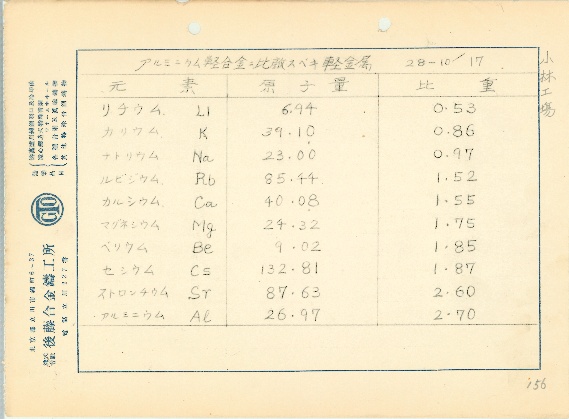 アルミニウム軽合金ニ比較スベキ軽金属 28-10/17
元素 原子量 比重
リチウム Li 6.94 0.53
カリウム K 39.10 0.86
ナトリウム Na 23.00 0.97
ルビジウム Rb 85.44 1.52
カルシウム Ca 40.08 1.55
マグネシウム Mg 24.32 1.75
ベリウム Be 9.02 1.85
セシウム Cs 132.81 1.87
ストロンチウム Sr 87.63 2.60
アルミニウム Al 26.97 2.70
小林工場
GTO
株式会社 後藤合金鋳工所
156